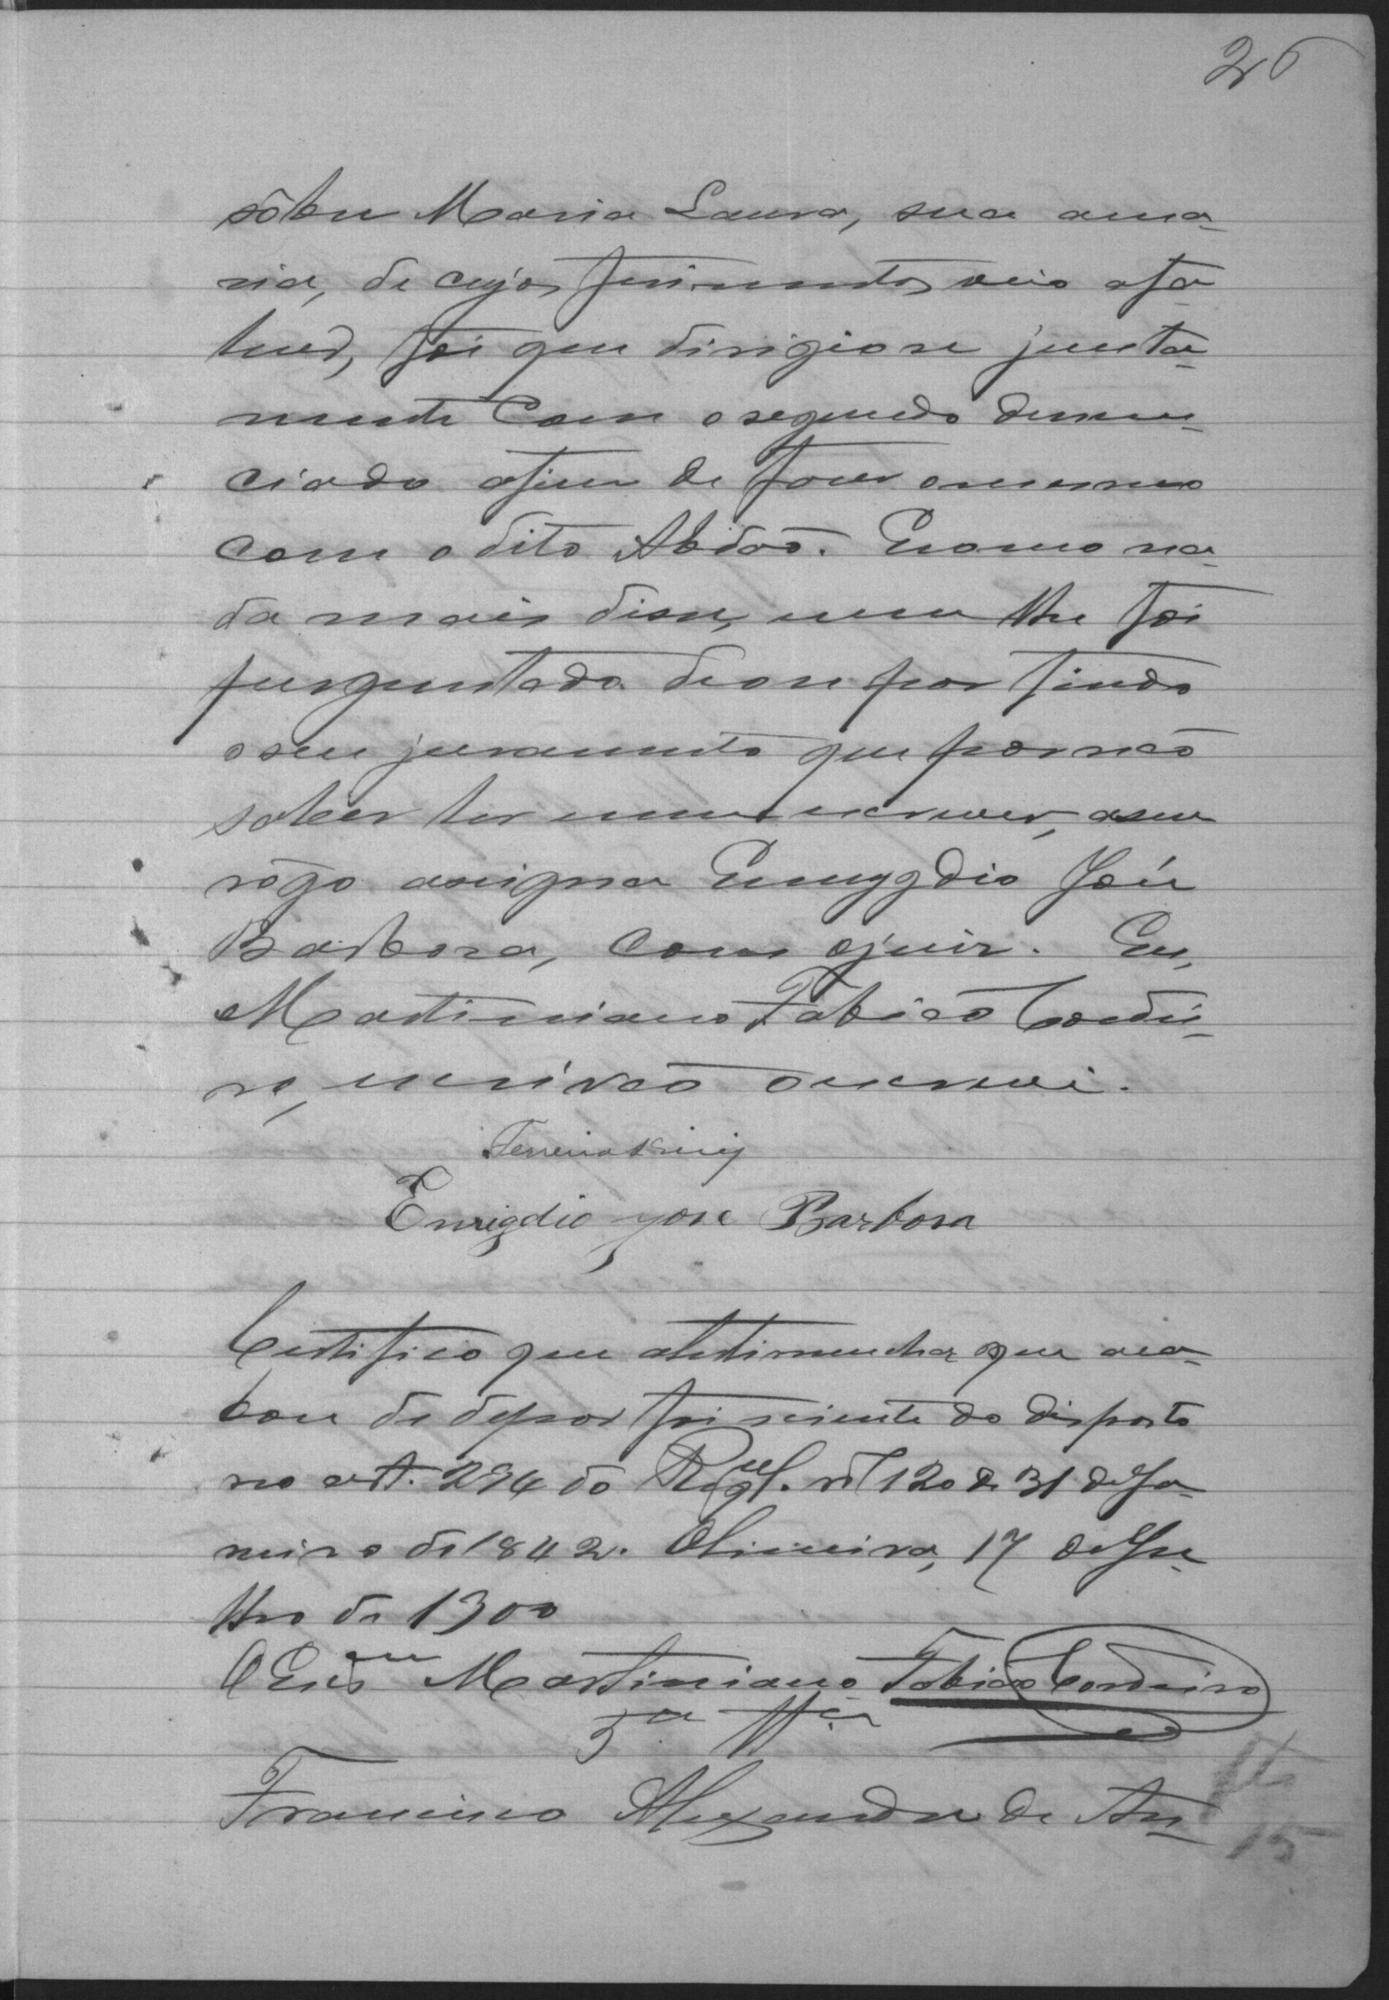 26
sôbre Maria Laura, sua ama-
sia, de cujos ferimentos veio a fa-
lecer, foi que dirigio se junta-
mente com o segundo denun-
ciado afim de fazer o mesmo
com o dito Abdão. E como na-
da mais disse, nem lhe foi
perguntado deo se por findo
o seu juramento que por não
saber ler nem escrever, a seu
rôgo assigna Emygdio José
Barbosa, com o juiz. Eu,
Martiniano Fabião Cordei-
ro, escrivão o escrevi.
Ferreira
Emigdio Jose Barbosa
Certifico que a testimunha que aca-
bou de depor foi sciente do disposto
no art. 294 do Regul. nº 120 de 31 de Ja-
neiro de 1842. Limeira, 17 de Ju-
lho de 1900
O Escrivam Martiniano Fabião Cordeiro
5ª Ttª
Francisco Alexandre de An-
15